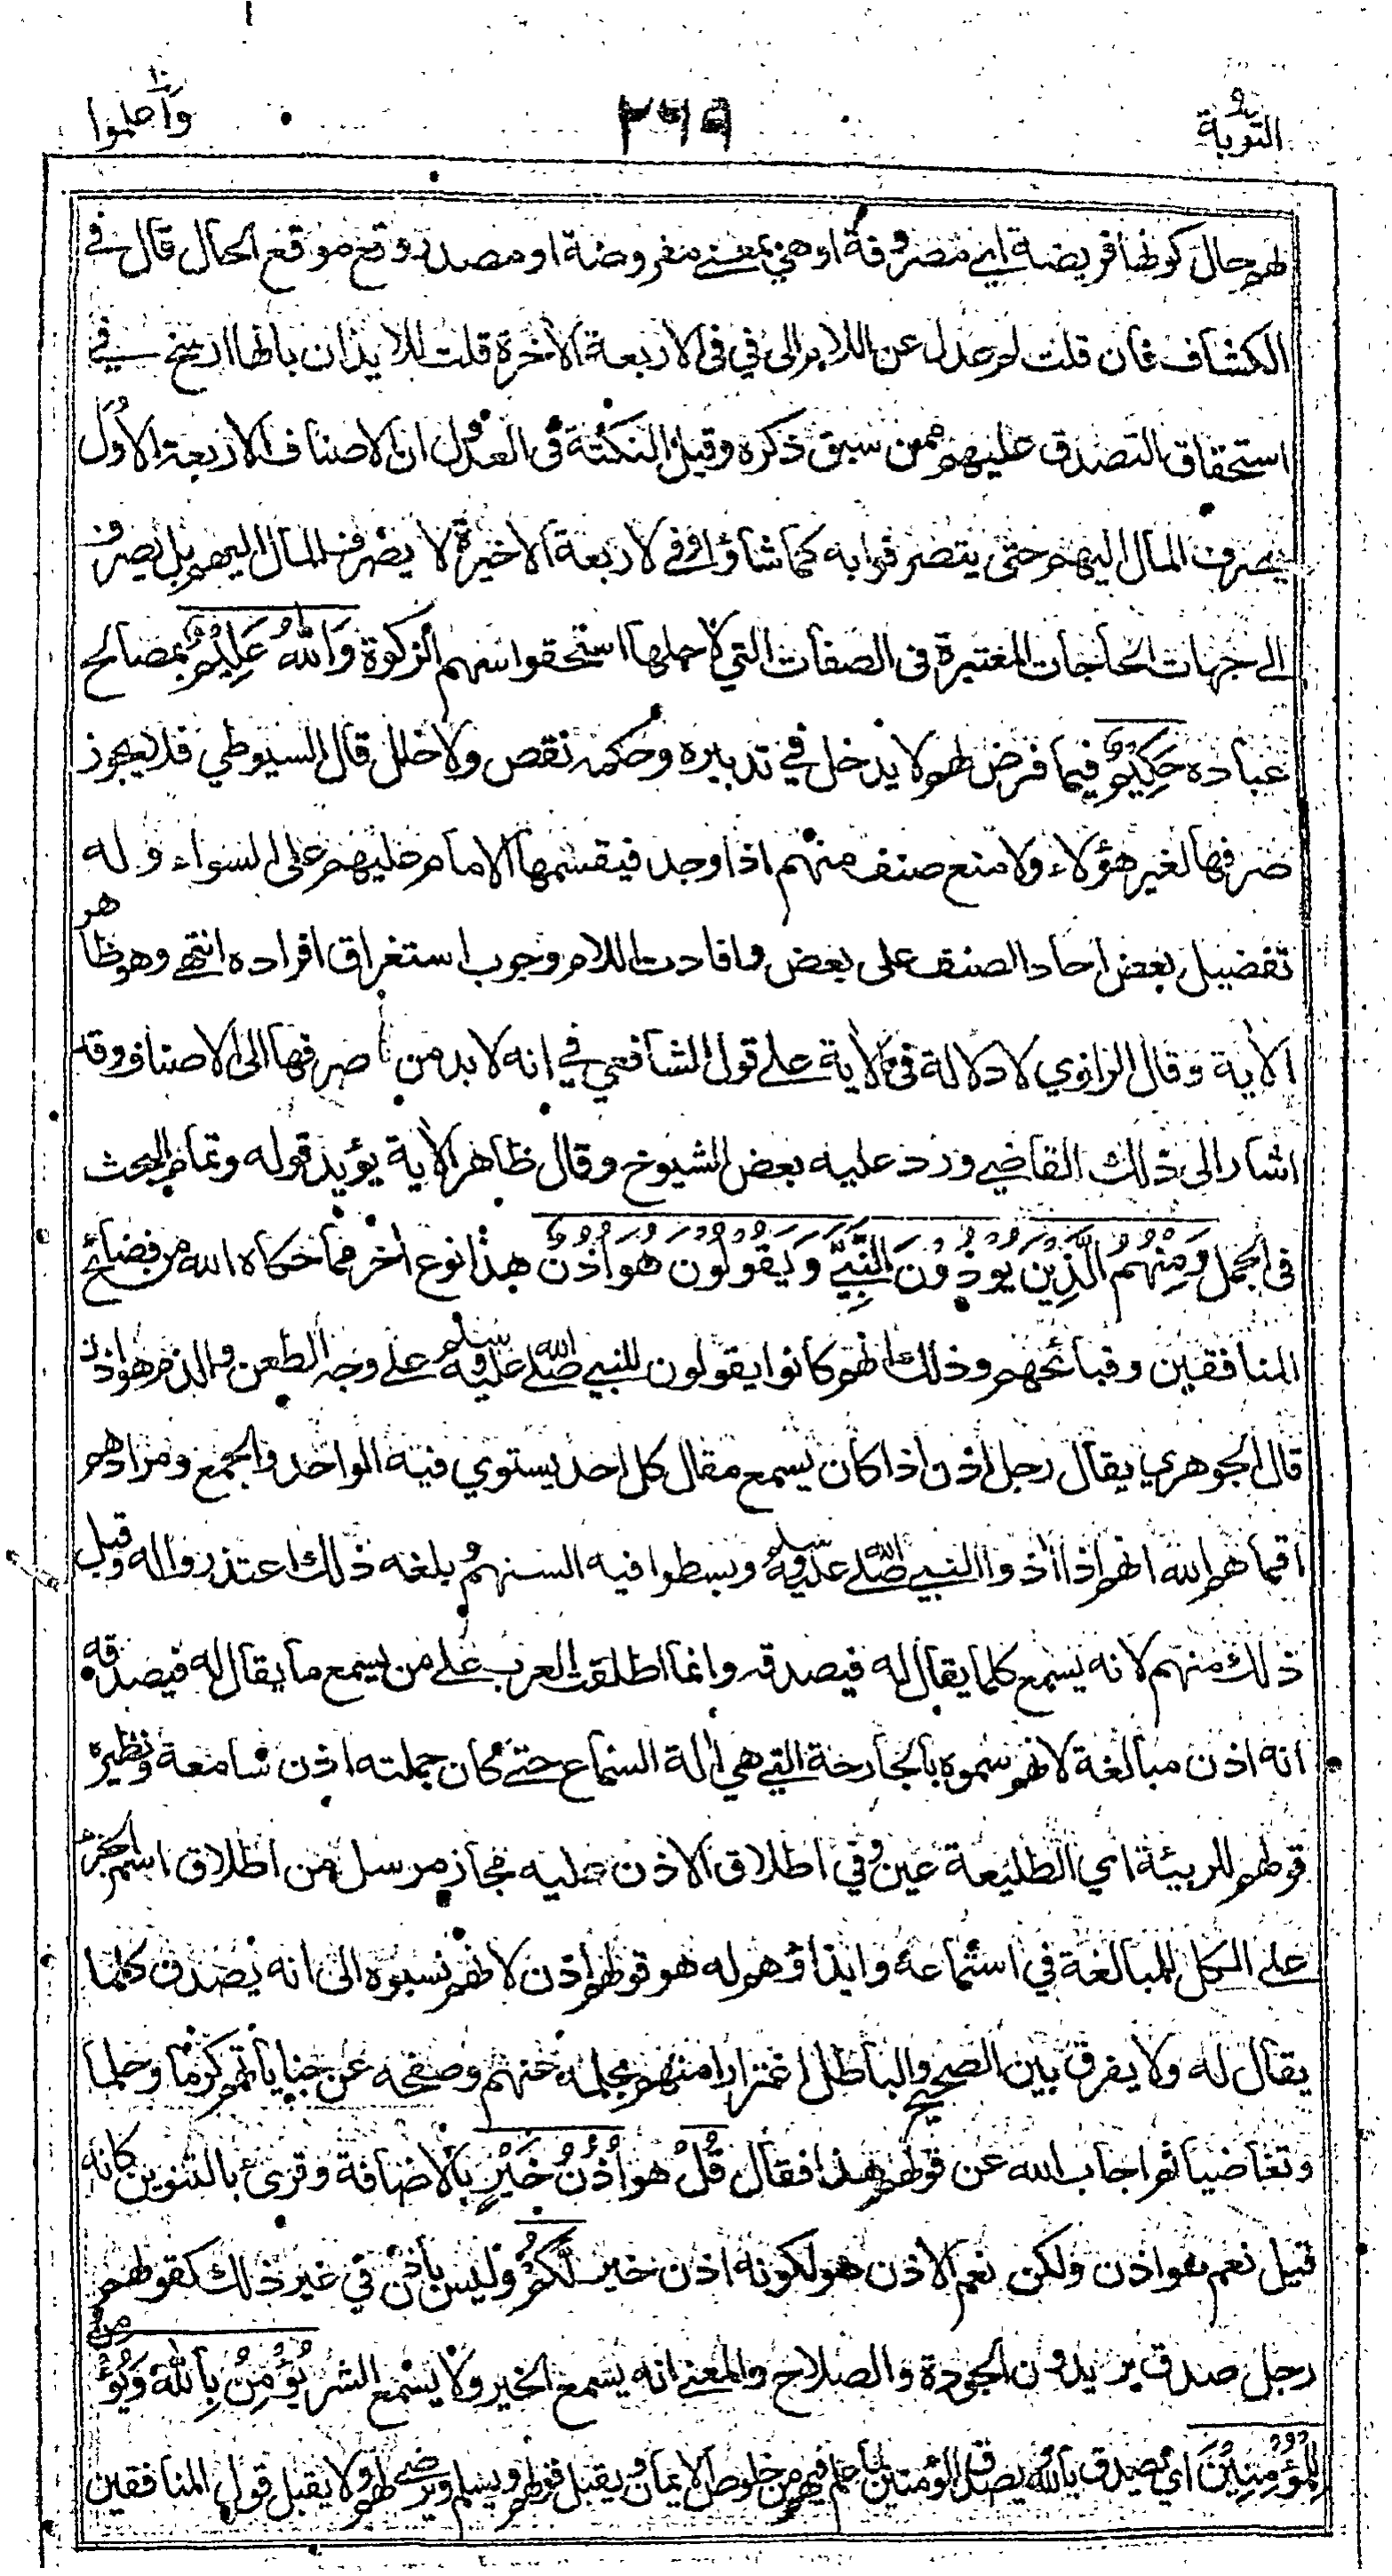 التوبة ٢٦٩ واعلموا
لهم حال كونها فريضة اي مصروفة او هي بمعنى مفروضة او مصدر وقع موقع الحال قال في
الكشاف فان قلت لم عدل عن اللام الى في في الاربعة الأخرة قلت للايذان بانها ارسخ في
استحقاق التصدق عليهم ممن سبق ذكره وقيل النكتة في العدول ان الاصناف الاربعة الأول
يصرف المال اليهم حتى يتصرفوا به كما شاؤا وفي الاربعة الاخيرة لا يصرف المال اليهم بل يصرف
الى جهات الحاجات المعتبرة في الصفات التي لاجلها استحقوا سهم الزكوة وَاللهُ عَلِيْمٌ بمصالح
عباده حَكِيْمٌ فيما فرض لهم لا يدخل في تدبيره وحكمه نقص ولا خلل قال السيوطي فلا يجوز
صرفها لغير هؤلاء ولا منع صنف منهم اذا وجد فيقسمها الامام عليهم على السواء وله
تفضيل بعض احاد الصنف على بعض وافادت اللام وجوب استغراق افراده انتهى وهو ظاهر
الأية وقال الرازي لا دلالة في الأية على قول الشافعي في انه لا بد من صرفها الى الاصناف وقد
اشار الى ذلك القاضي ورد عليه بعض الشيوخ وقال ظاهر الأية يؤيد قوله وتمام البحث
في الجمل وَمِنْهُمُ الَّذِيْنَ يُؤْذُوْنَ النَّبِيَّ وَيَقُوْلُوْنَ هُوَ اُذُنٌ هذا نوع أخر مما حكاه الله من فضائح
المنافقين وقبائحهم وذلك انهم كانوا يقولون للنبي صلى الله عليه وسلم على وجه الطعن والذم هو اذن
قال الجوهري يقال رجل اذن اذا كان يسمع مقال كل احد يستوي فيه الواحد والجمع ومرادهم
اقماهم الله انهم اذا اذوا النبي صلى الله عليه وسلم وبسطوا فيه السنتهم بلغه ذلك اعتذروا له وقبل
ذلك منهم لانه يسمع كلما يقال له فيصدقه وانما اطلقت العرب على من يسمع ما يقال له فيصدقه
انه اذن مبالغة لانهم سموه بالجارحة التي هي ألة السماع حتى كان جملته اذن سامعة ونظيره
قولهم للربيئة اي الطليعة عين وفي اطلاق الاذن عليه مجاز مرسل من اطلاق اسم الجزء
على الكل للمبالغة في استماعه وايذاؤهم له هو قولهم اذن لانهم نسبوه الى انه يصدق كلما
يقال له ولا يفرق بين الصحيح والباطل اغترارا منهم بحلمه عنهم وصفحه عن جناياتهم كرما وحلما
وتغاضيا ثم اجاب الله عن قولهم هذا فقال قُلْ هو اُذُنُ خَيْرٍ بالاضافة وقرئ بالتنوين كانه
قيل نعم هو اذن ولكن نعم الاذن هو لكونه اذن خير لَّكُمْ وليس باذن في غير ذلك كقولهم
رجل صدق يريدون الجودة والصلاح والمعنى انه يسمع الخير ولا يسمع الشر يُؤْمِنُ بِاللهِ وَيُؤْمِنُ
لِلْمُؤْمِنِيْنَ اي يصدق بالله ويصدق المؤمنين لما علم فيهم من خلوص الايمان ويقبل قولهم ويسلم ويرضى لهم ولا يقبل قول المنافقين